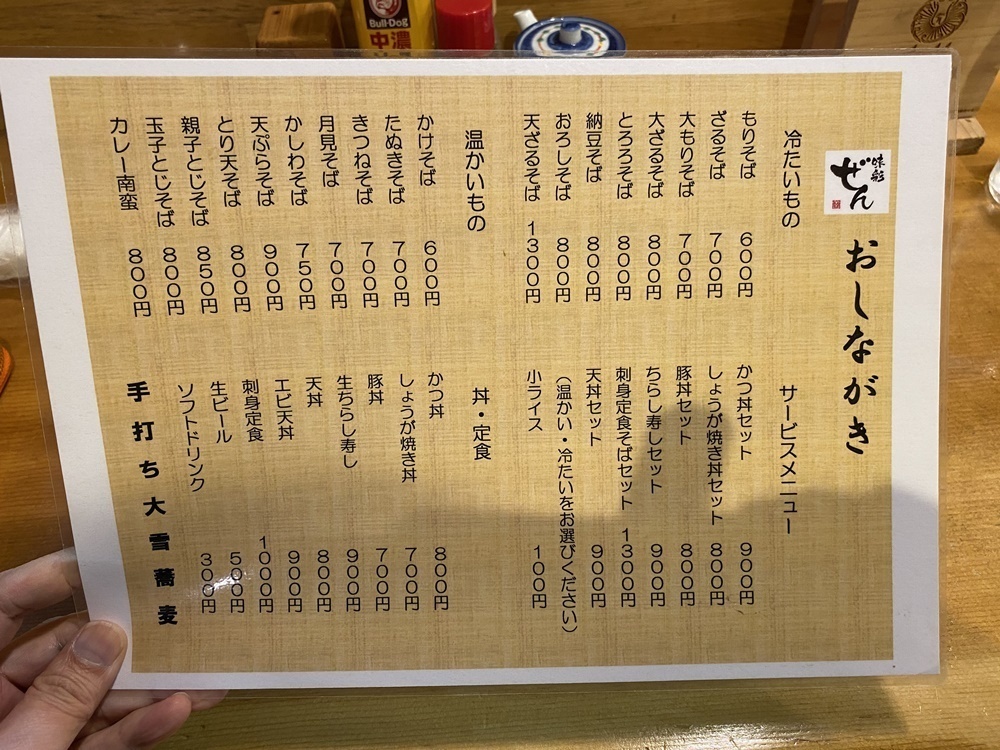 Bull-Dog
中濃
味彩
ぜん
おしながき
冷たいもの
もりそば 600円
ざるそば 700円
大もりそば 700円
大ざるそば 800円
とろろそば 800円
納豆そば 800円
おろしそば 800円
天ざるそば 1300円
温かいもの
かけそば 600円
たぬきそば 700円
きつねそば 700円
月見そば 700円
かしわそば 750円
天ぷらそば 900円
とり天そば 800円
親子とじそば 850円
玉子とじそば 800円
カレー南蛮 800円
サービスメニュー
かつ丼セット 900円
しょうが焼き丼セット 800円
豚丼セット 800円
ちらし寿しセット 900円
刺身定食そばセット 1300円
天丼セット 900円
(温かい・冷たいをお選びください)
小ライス 100円
丼・定食
かつ丼 800円
しょうが焼き丼 700円
豚丼 700円
生ちらし寿し 900円
天丼 800円
エビ天丼 900円
刺身定食 1000円
生ビール 500円
ソフトドリンク 300円
手打ち大雪蕎麦